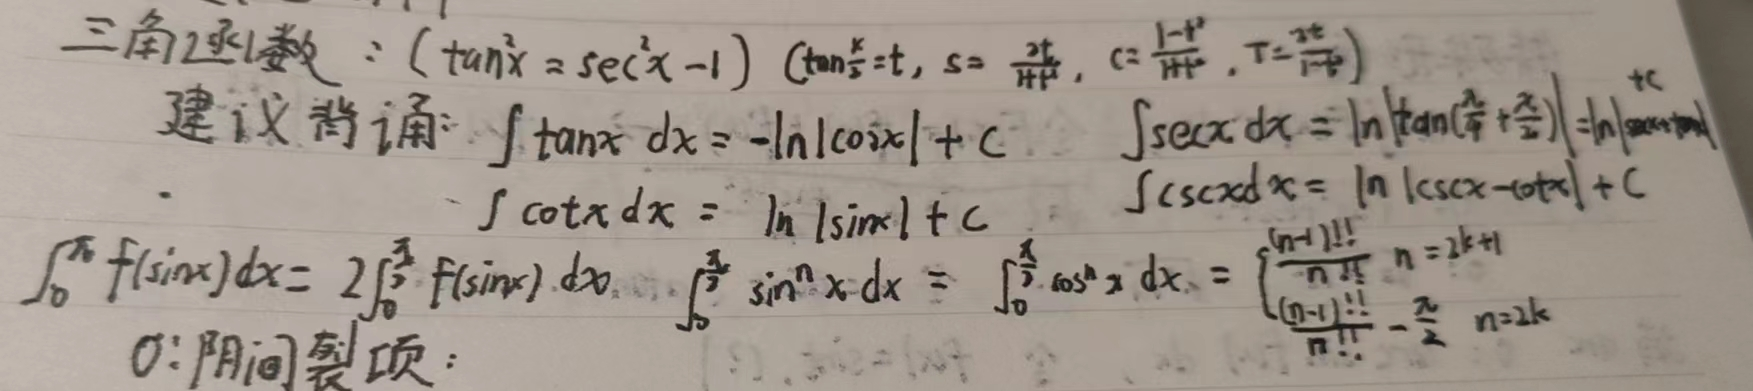 三角函数：(tan²x = sec²x - 1) (tan x/2 = t, s = 2t/(1+t²), c = (1-t²)/(1+t²), T = 2t/(1-t²))
建议背诵: ∫tanx dx = -ln|cosx| + C ∫secx dx = ln|tan(π/4 + x/2)| = ln|secx+tanx| +C
∫cotx dx = ln|sinx| + C ∫cscx dx = ln|cscx-cotx| + C
∫₀^π f(sinx)dx = 2∫₀^(π/2) f(sinx) dx. ∫₀^(π/2) sinⁿx dx = ∫₀^(π/2) cosⁿx dx = { (n-1)!!/n!! n=2k+1
(n-1)!!/n!! - π/2 n=2k
0:阴间裂项：